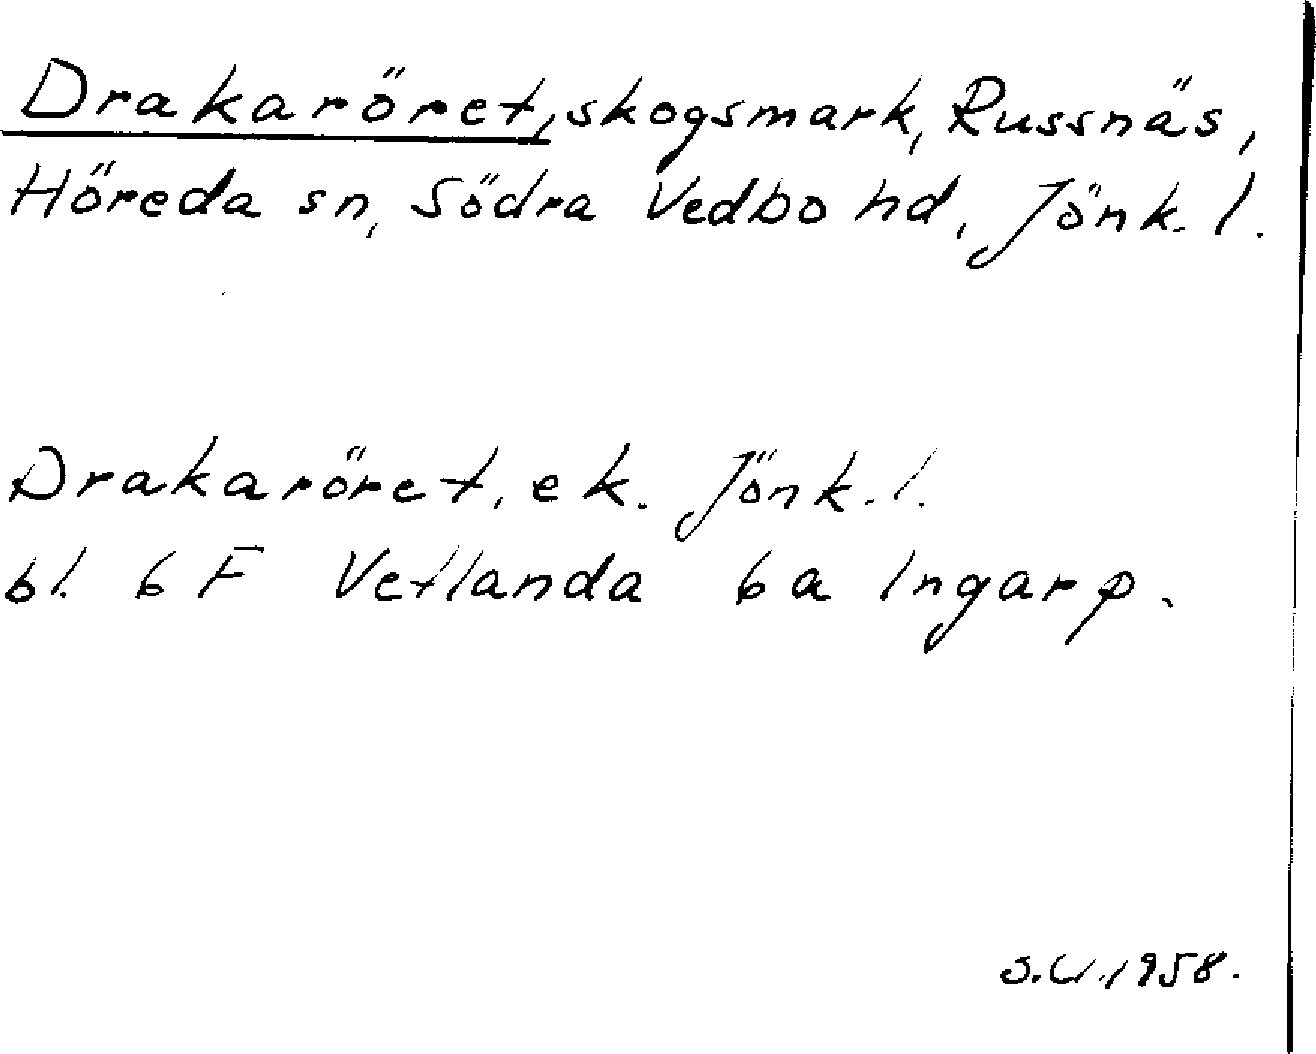 Drakaröret, skogsmark, Russnäs,
Höreda sn, Södra Vedbo hd, Jönk. l.
Drakaröret, ek. Jönk. l.
bl. 6 F Vetlanda 6 a Ingarp.
S.U. 1958.